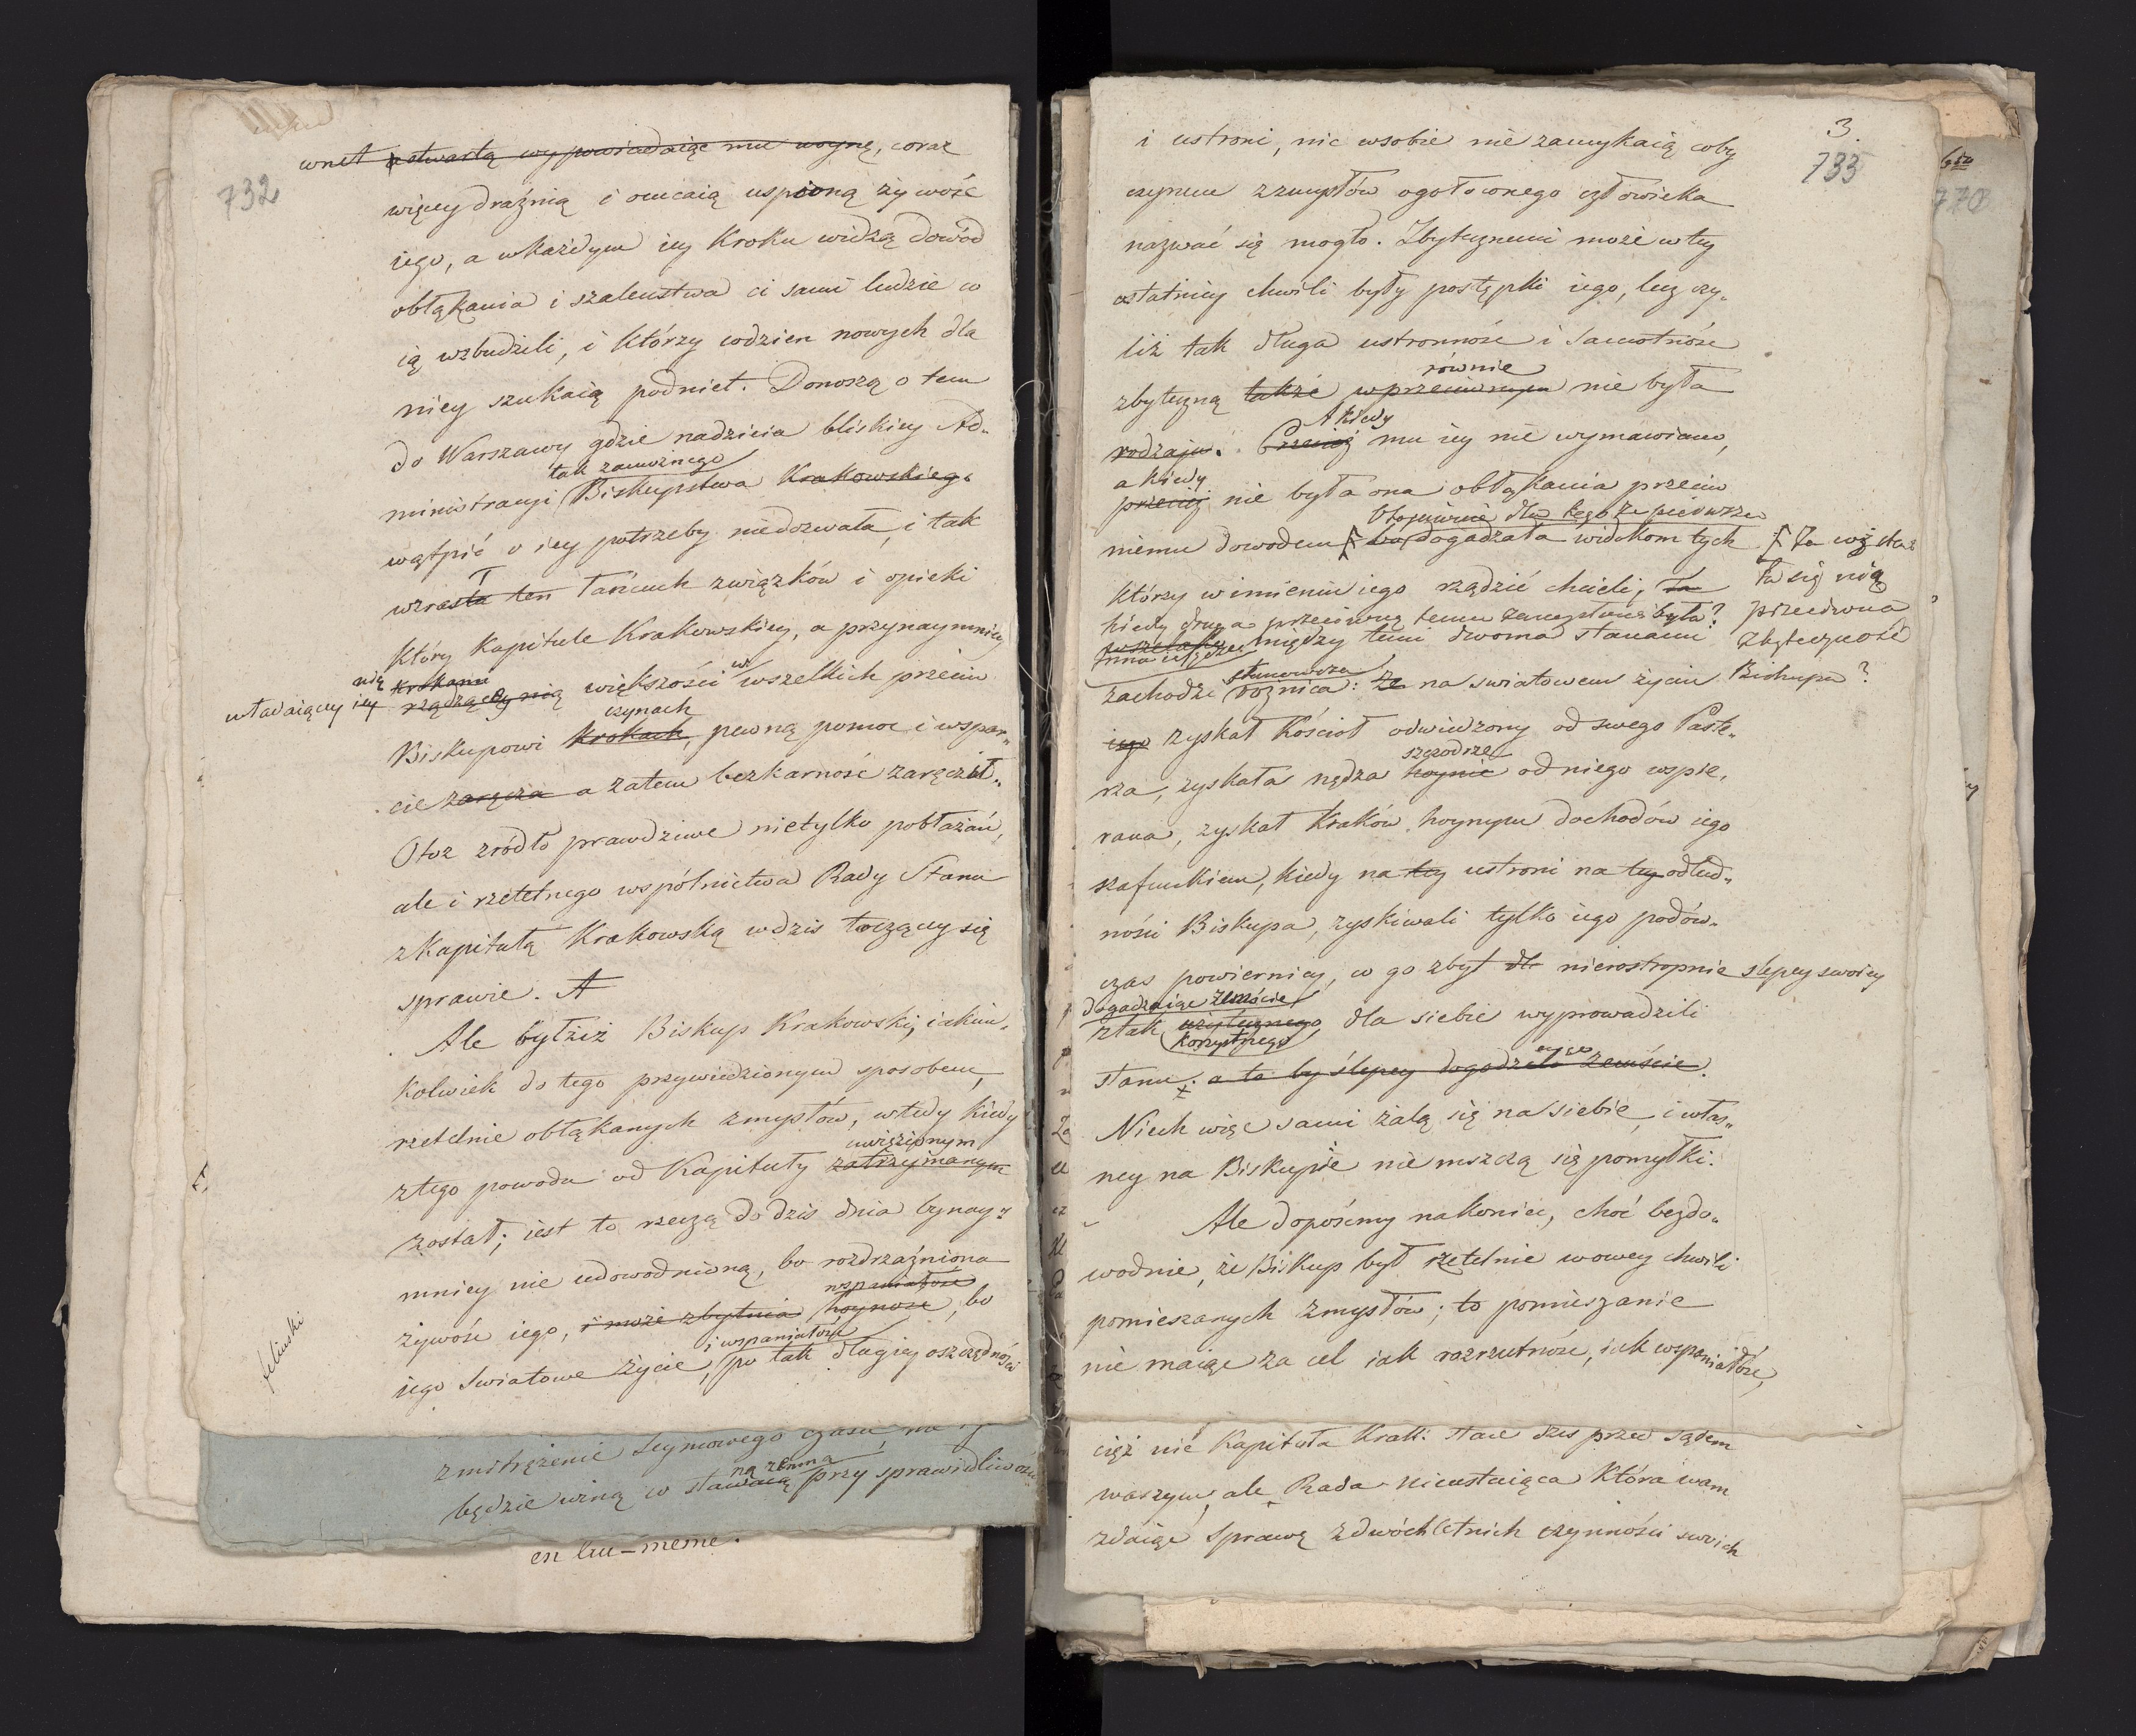 732
wnet otwartą wypowiadaiąc mu woynę, coraz
więcey drażnią i ocucaią uspioną żywość
iego, a wkażdym iey kroku widzą dowód
obłąkania i szaleństwa ci sami ludzie co
ią wzbudzili, i którzy codzien nowych dla
niey szukaią podniet. Donoszą o tem
do Warszawy gdzie nadzieia bliskiey Ad„
tak zamożnego
ministracyi Biskupstwa Krakowskiego
wątpić o iey potrzeby niedozwala, i tak
wzrasta ten łańcuch związków i opieki
który Kapitule Krakowskiey, a przynaymniey
nią krokami
władaiącey iey rządzącey nią większości w wszelkich przeciw
czynach
Biskupowi krokach, pewną pomoc i wspar„
cie zaręcza a zatem bezkarność zaręczał.
Otoz zródło prawdziwe nietylko pobłażań,
ale i rzetelnego wspólnictwa Rady Stanu
z Kapitułą Krakowską wdzis toczącey się
sprawie. A
Ale byłżiż Biskup Krakowski, iakim„
kolwiek do tego przywiedzionym sposobem,
rzetelnie obłąkanych zmysłów, wtedy kiedy
uwięzionym
ztego powodu od Kapituły zatrzymanym
został; iest to rzeczą do dzis dnia bynay„
mniey nie udowodnioną, bo rozdrzaźniona
wspaniałość
żywość iego, i może zbytnia hoynosc, bo
i wspaniałość
iego Swiatowe życie, po tak długiey oszczędności
feliński
zmitrężenie Seymowego czasu, na
ną zemną
będzie winą w stawaią przy sprawiedliwości
en lui-même.
3
733
i ustroni, nic wsobie nie zamykaią coby
czynem zzmysłów ogołoconego człowieka
nazwać się mogło. Zbytecznemi może wtey
ostatniey chwili były postępki iego, lecz czy„
liż tak długa ustronność i Samotność
równie
zbyteczną także wprzeciwnym nie była
A kiedy
rodzaju. Przecięż mu iey nie wymawiano,
a kiedy
przecięż nie była ona obłąkania przeciw
Otopiwnie dla tego ze pierwsza
niemu dowodem bo dogadzała widokom tych
którzy wimieniu iego rządzić chcieli, ta
kiedy druga przeciwną temu zamysłowi była?
między temi dwoma stanami
przeciwna
zbyteczność
stanowcza
zachodzi roznica: ze na swiatowem życiu Biskupa?
iego zyskał Kościoł odwiedzony od swego Paste„
szczodrze
rza, zyskała nędza hoynie od niego wspie„
rana, zyskał Kraków hoynym dochodów iego
szafunkiem, kiedy na tey ustroni na tey odlud„
ności Biskupa, zyskiwali tylko iego podów„
czas powiernicy, co go zbyt dla nierostropnie slepey swoiey
dogadzaiąc zemście
ztak użytecznego dla siebie wyprowadzili
korzystnego
stanu. a to by ślepey dogodzili zemście.
Niech więc sami żalą się na siebie, i włas„
ney na Biskupie nie mszczą się pomyłki.
Ale dopośćmy nakoniec, choć bezdo„
wodnie, że Biskup był rzetelnie wowey chwili
pomieszanych zmysłów; to pomieszanie
nie maiąc za cel iak rozrzutność, iak wspaniałość,
cięż nie Kapituła Krak: staie dzis przed sądem
waszym, ale Rada Nieustaiąca która wam
zdaiąc sprawę zdwóchletnich czynności swoich
770